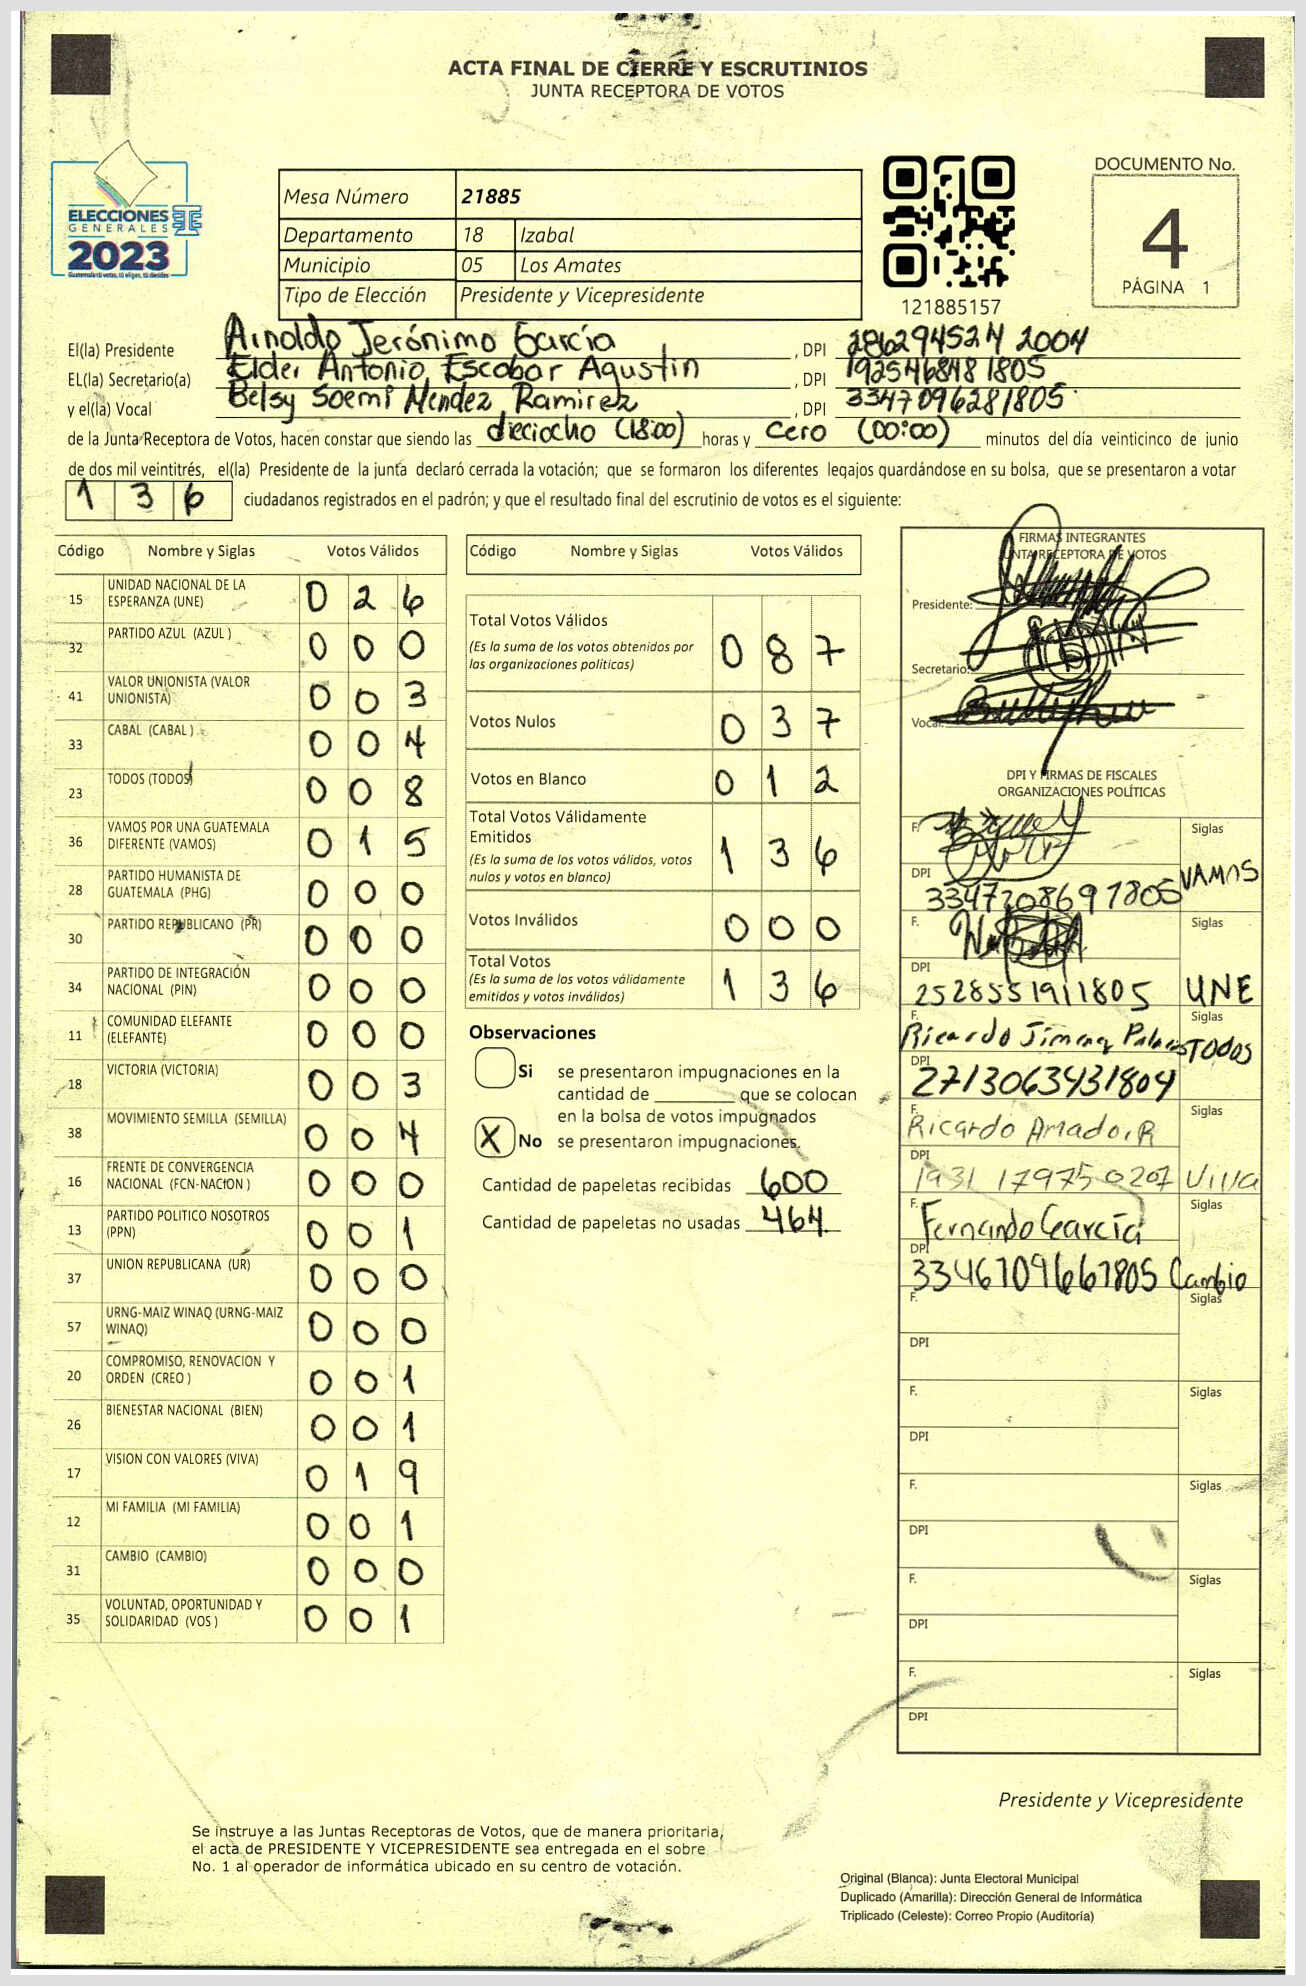 ACTA FINAL DE CIERRE Y ESCRUTINIOS
JUNTA RECEPTORA DE VOTOS
ELECCIONES
GENERALES
2023
Mesa Número 21885
Departamento 18 Izabal
Municipio 05 Los Amates
Tipo de Elección Presidente y Vicepresidente
121885157
DOCUMENTO No.
4
PÁGINA 1
El(la) Presidente Arnoldo Jerónimo García , DPI 286294524 2004
EL(la) Secretario(a) Elder Antonio Escobar Agustin , DPI 192546848 1805
y el(la) Vocal Belsy Soemi Mendez Ramirez , DPI 3347096281805
de la Junta Receptora de Votos, hacen constar que siendo las dieciocho (18:00) horas y cero (00:00) minutos del día veinticinco de junio
de dos mil veintitrés, el(la) Presidente de la junta declaró cerrada la votación; que se formaron los diferentes legajos guardándose en su bolsa, que se presentaron a votar
1 3 6 ciudadanos registrados en el padrón; y que el resultado final del escrutinio de votos es el siguiente:
Código Nombre y Siglas Votos Válidos
15 UNIDAD NACIONAL DE LA ESPERANZA (UNE) 0 2 6
32 PARTIDO AZUL (AZUL ) 0 0 0
41 VALOR UNIONISTA (VALOR UNIONISTA) 0 0 3
33 CABAL (CABAL ) 0 0 4
23 TODOS (TODOS) 0 0 8
36 VAMOS POR UNA GUATEMALA DIFERENTE (VAMOS) 0 1 5
28 PARTIDO HUMANISTA DE GUATEMALA (PHG) 0 0 0
30 PARTIDO REPUBLICANO (PR) 0 0 0
34 PARTIDO DE INTEGRACIÓN NACIONAL (PIN) 0 0 0
11 COMUNIDAD ELEFANTE (ELEFANTE) 0 0 0
18 VICTORIA (VICTORIA) 0 0 3
38 MOVIMIENTO SEMILLA (SEMILLA) 0 0 4
16 FRENTE DE CONVERGENCIA NACIONAL (FCN-NACION ) 0 0 0
13 PARTIDO POLITICO NOSOTROS (PPN) 0 0 1
37 UNION REPUBLICANA (UR) 0 0 0
57 URNG-MAIZ WINAQ (URNG-MAIZ WINAQ) 0 0 0
20 COMPROMISO, RENOVACION Y ORDEN (CREO ) 0 0 1
26 BIENESTAR NACIONAL (BIEN) 0 0 1
17 VISION CON VALORES (VIVA) 0 1 9
12 MI FAMILIA (MI FAMILIA) 0 0 1
31 CAMBIO (CAMBIO) 0 0 0
35 VOLUNTAD, OPORTUNIDAD Y SOLIDARIDAD (VOS ) 0 0 1
Código Nombre y Siglas Votos Válidos
Total Votos Válidos
(Es la suma de los votos obtenidos por las organizaciones políticas) 0 8 7
Votos Nulos 0 3 7
Votos en Blanco 0 1 2
Total Votos Válidamente Emitidos
(Es la suma de los votos válidos, votos nulos y votos en blanco) 1 3 6
Votos Inválidos 0 0 0
Total Votos
(Es la suma de los votos válidamente emitidos y votos inválidos) 1 3 6
Observaciones
Si se presentaron impugnaciones en la
cantidad de ________ que se colocan
en la bolsa de votos impugnados
X No se presentaron impugnaciones.
Cantidad de papeletas recibidas 600
Cantidad de papeletas no usadas 464
FIRMAS INTEGRANTES
JUNTA RECEPTORA DE VOTOS
Presidente:
Secretario:
Vocal:
DPI Y FIRMAS DE FISCALES
ORGANIZACIONES POLÍTICAS
F. Siglas
DPI 3347208697805 VAMOS
F. Siglas
DPI 2528551911805 UNE
F. Ricardo Jimenez Siglas TODOS
DPI 2713063431804
F. Ricardo Amado.R Siglas
DPI 1931 179750207 Viva
F. Fernando García Siglas
DPI 3346709661805 Cambio
F. Siglas
DPI
F. Siglas
DPI
F. Siglas
DPI
F. Siglas
DPI
F. Siglas
DPI
Presidente y Vicepresidente
Se instruye a las Juntas Receptoras de Votos, que de manera prioritaria,
el acta de PRESIDENTE Y VICEPRESIDENTE sea entregada en el sobre
No. 1 al operador de informática ubicado en su centro de votación.
Original (Blanca): Junta Electoral Municipal
Duplicado (Amarilla): Dirección General de Informática
Triplicado (Celeste): Correo Propio (Auditoría)